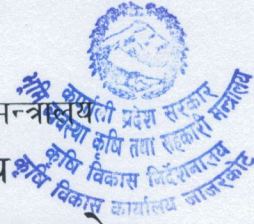 कर्णाली प्रदेश सरकार
भूमि व्यवस्था कृषि तथा सहकारी मन्त्रालय
कृषि विकास निर्देशनालय
कृषि विकास कार्यालय जाजरकोट
मन्त्रालय